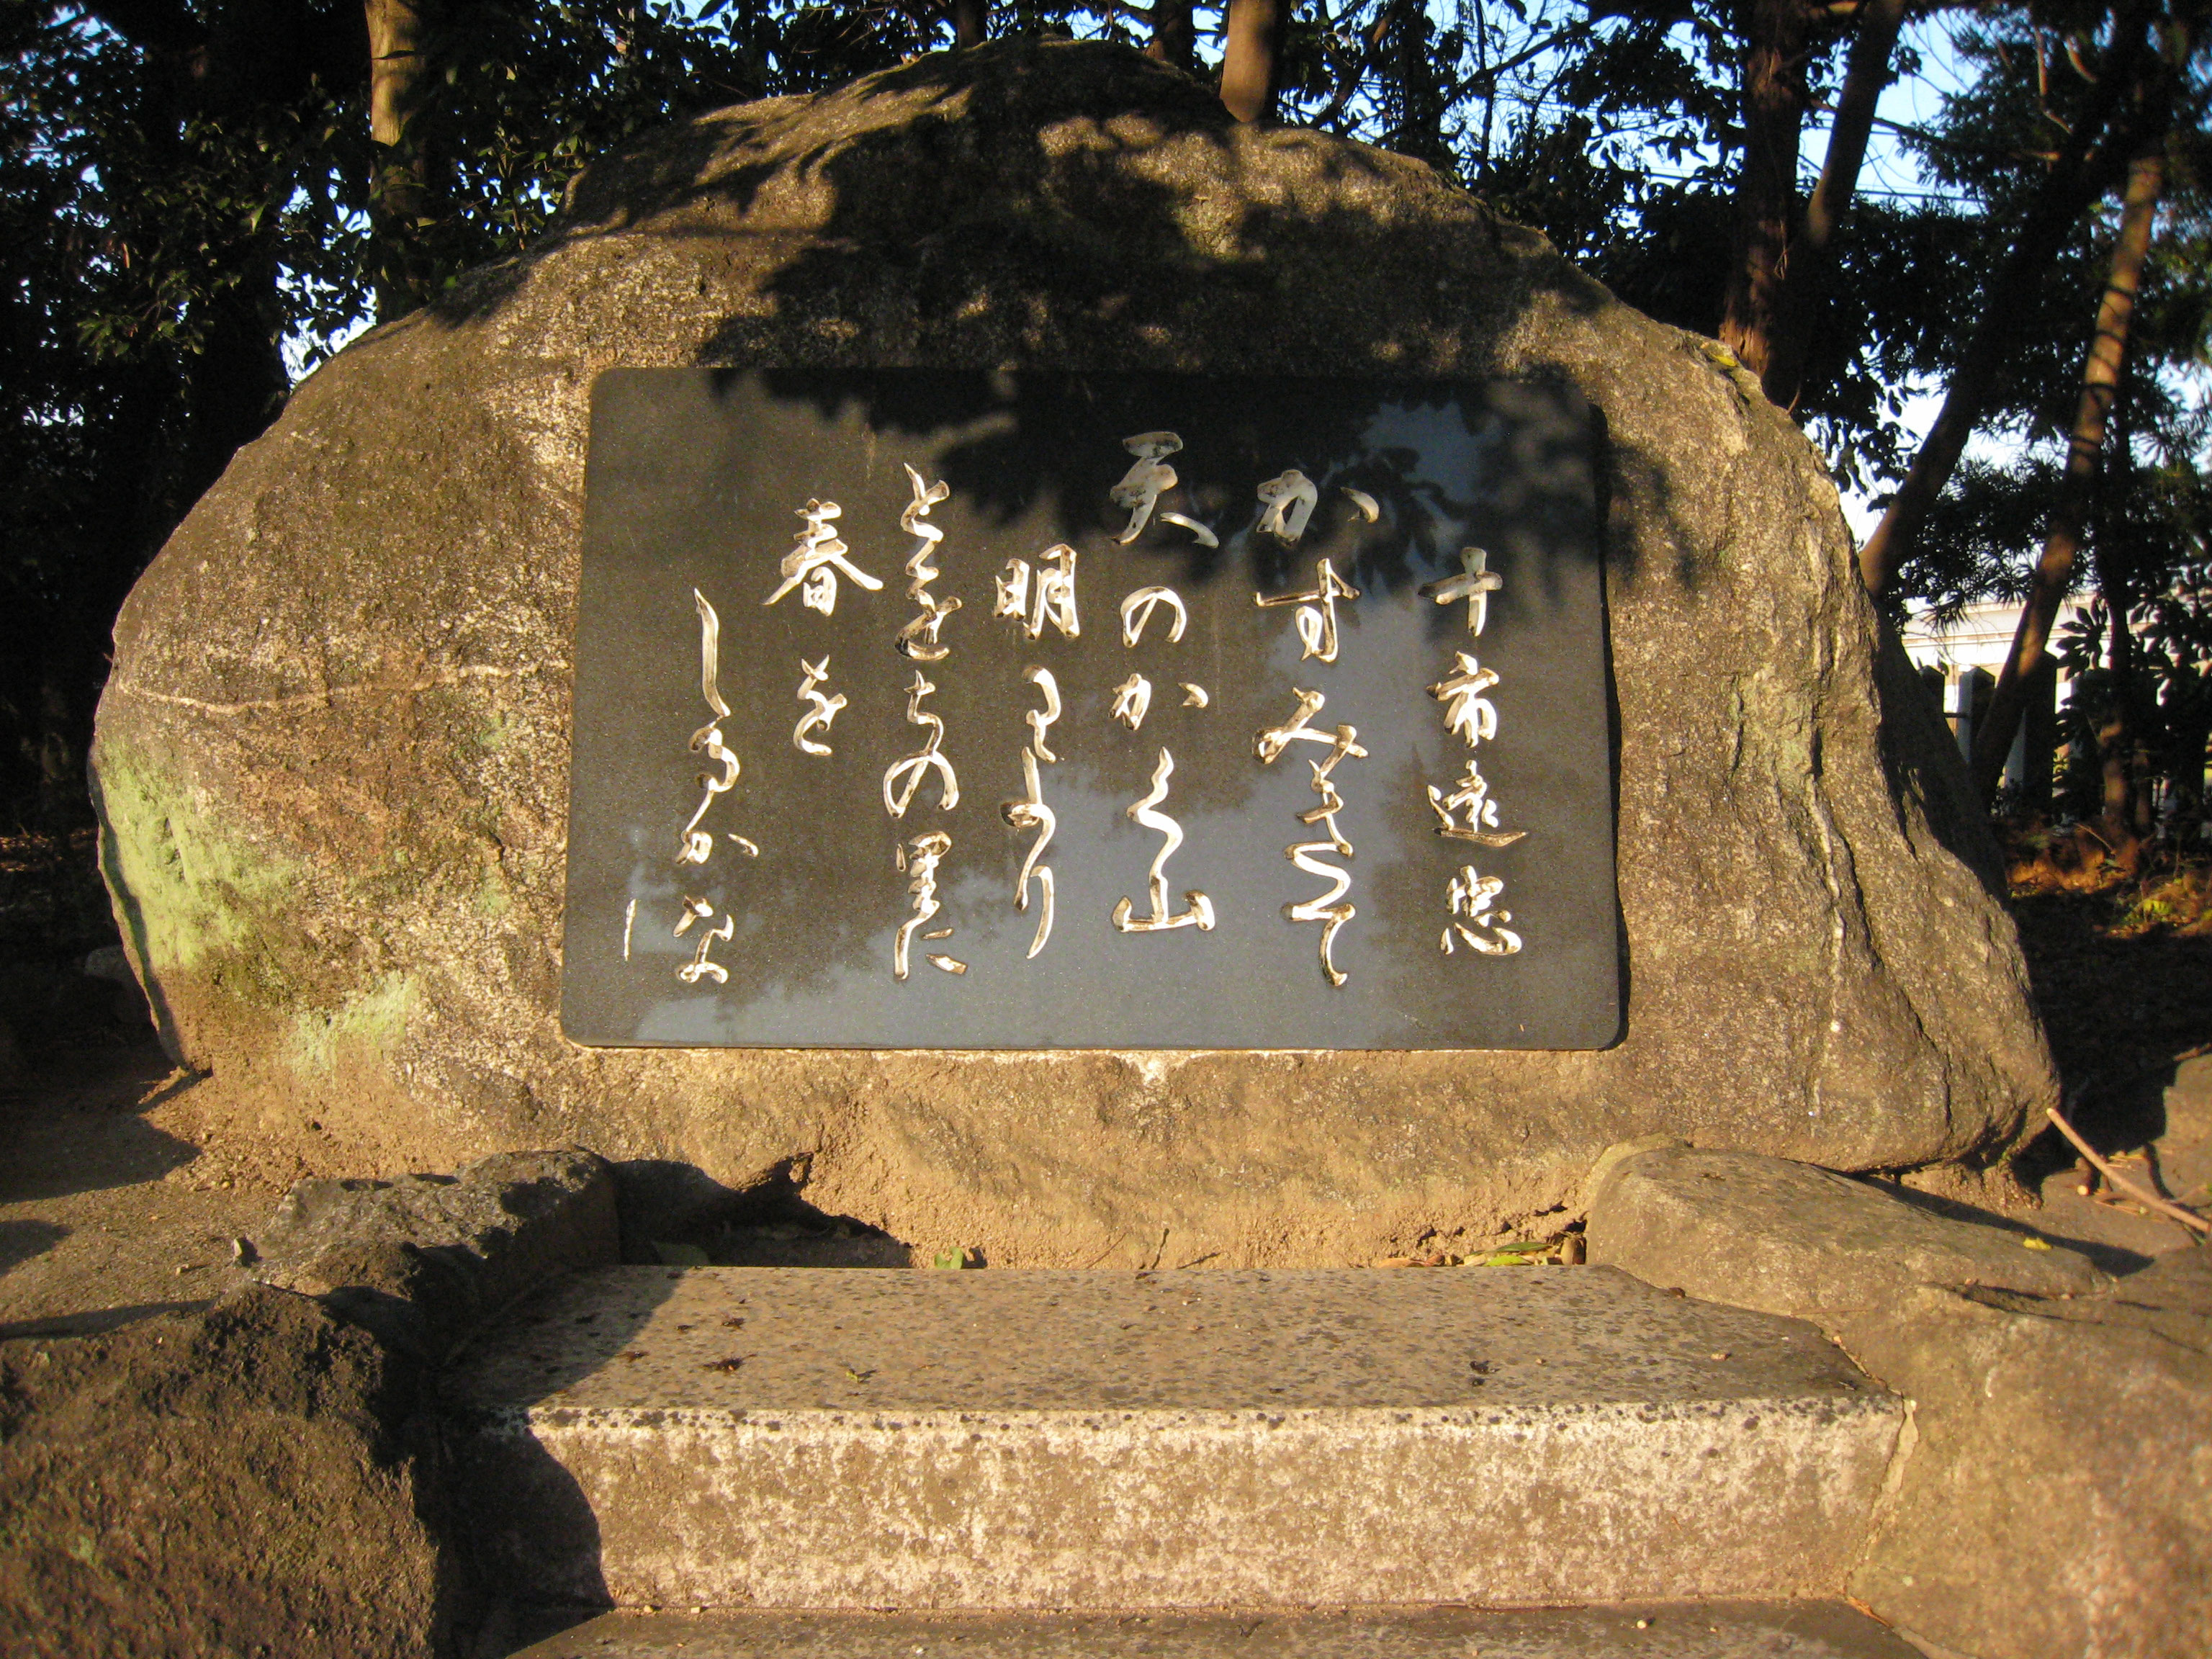 十市遠忠
かすみ
天のかく山
明るより
とをちの里に
春を
しるかな